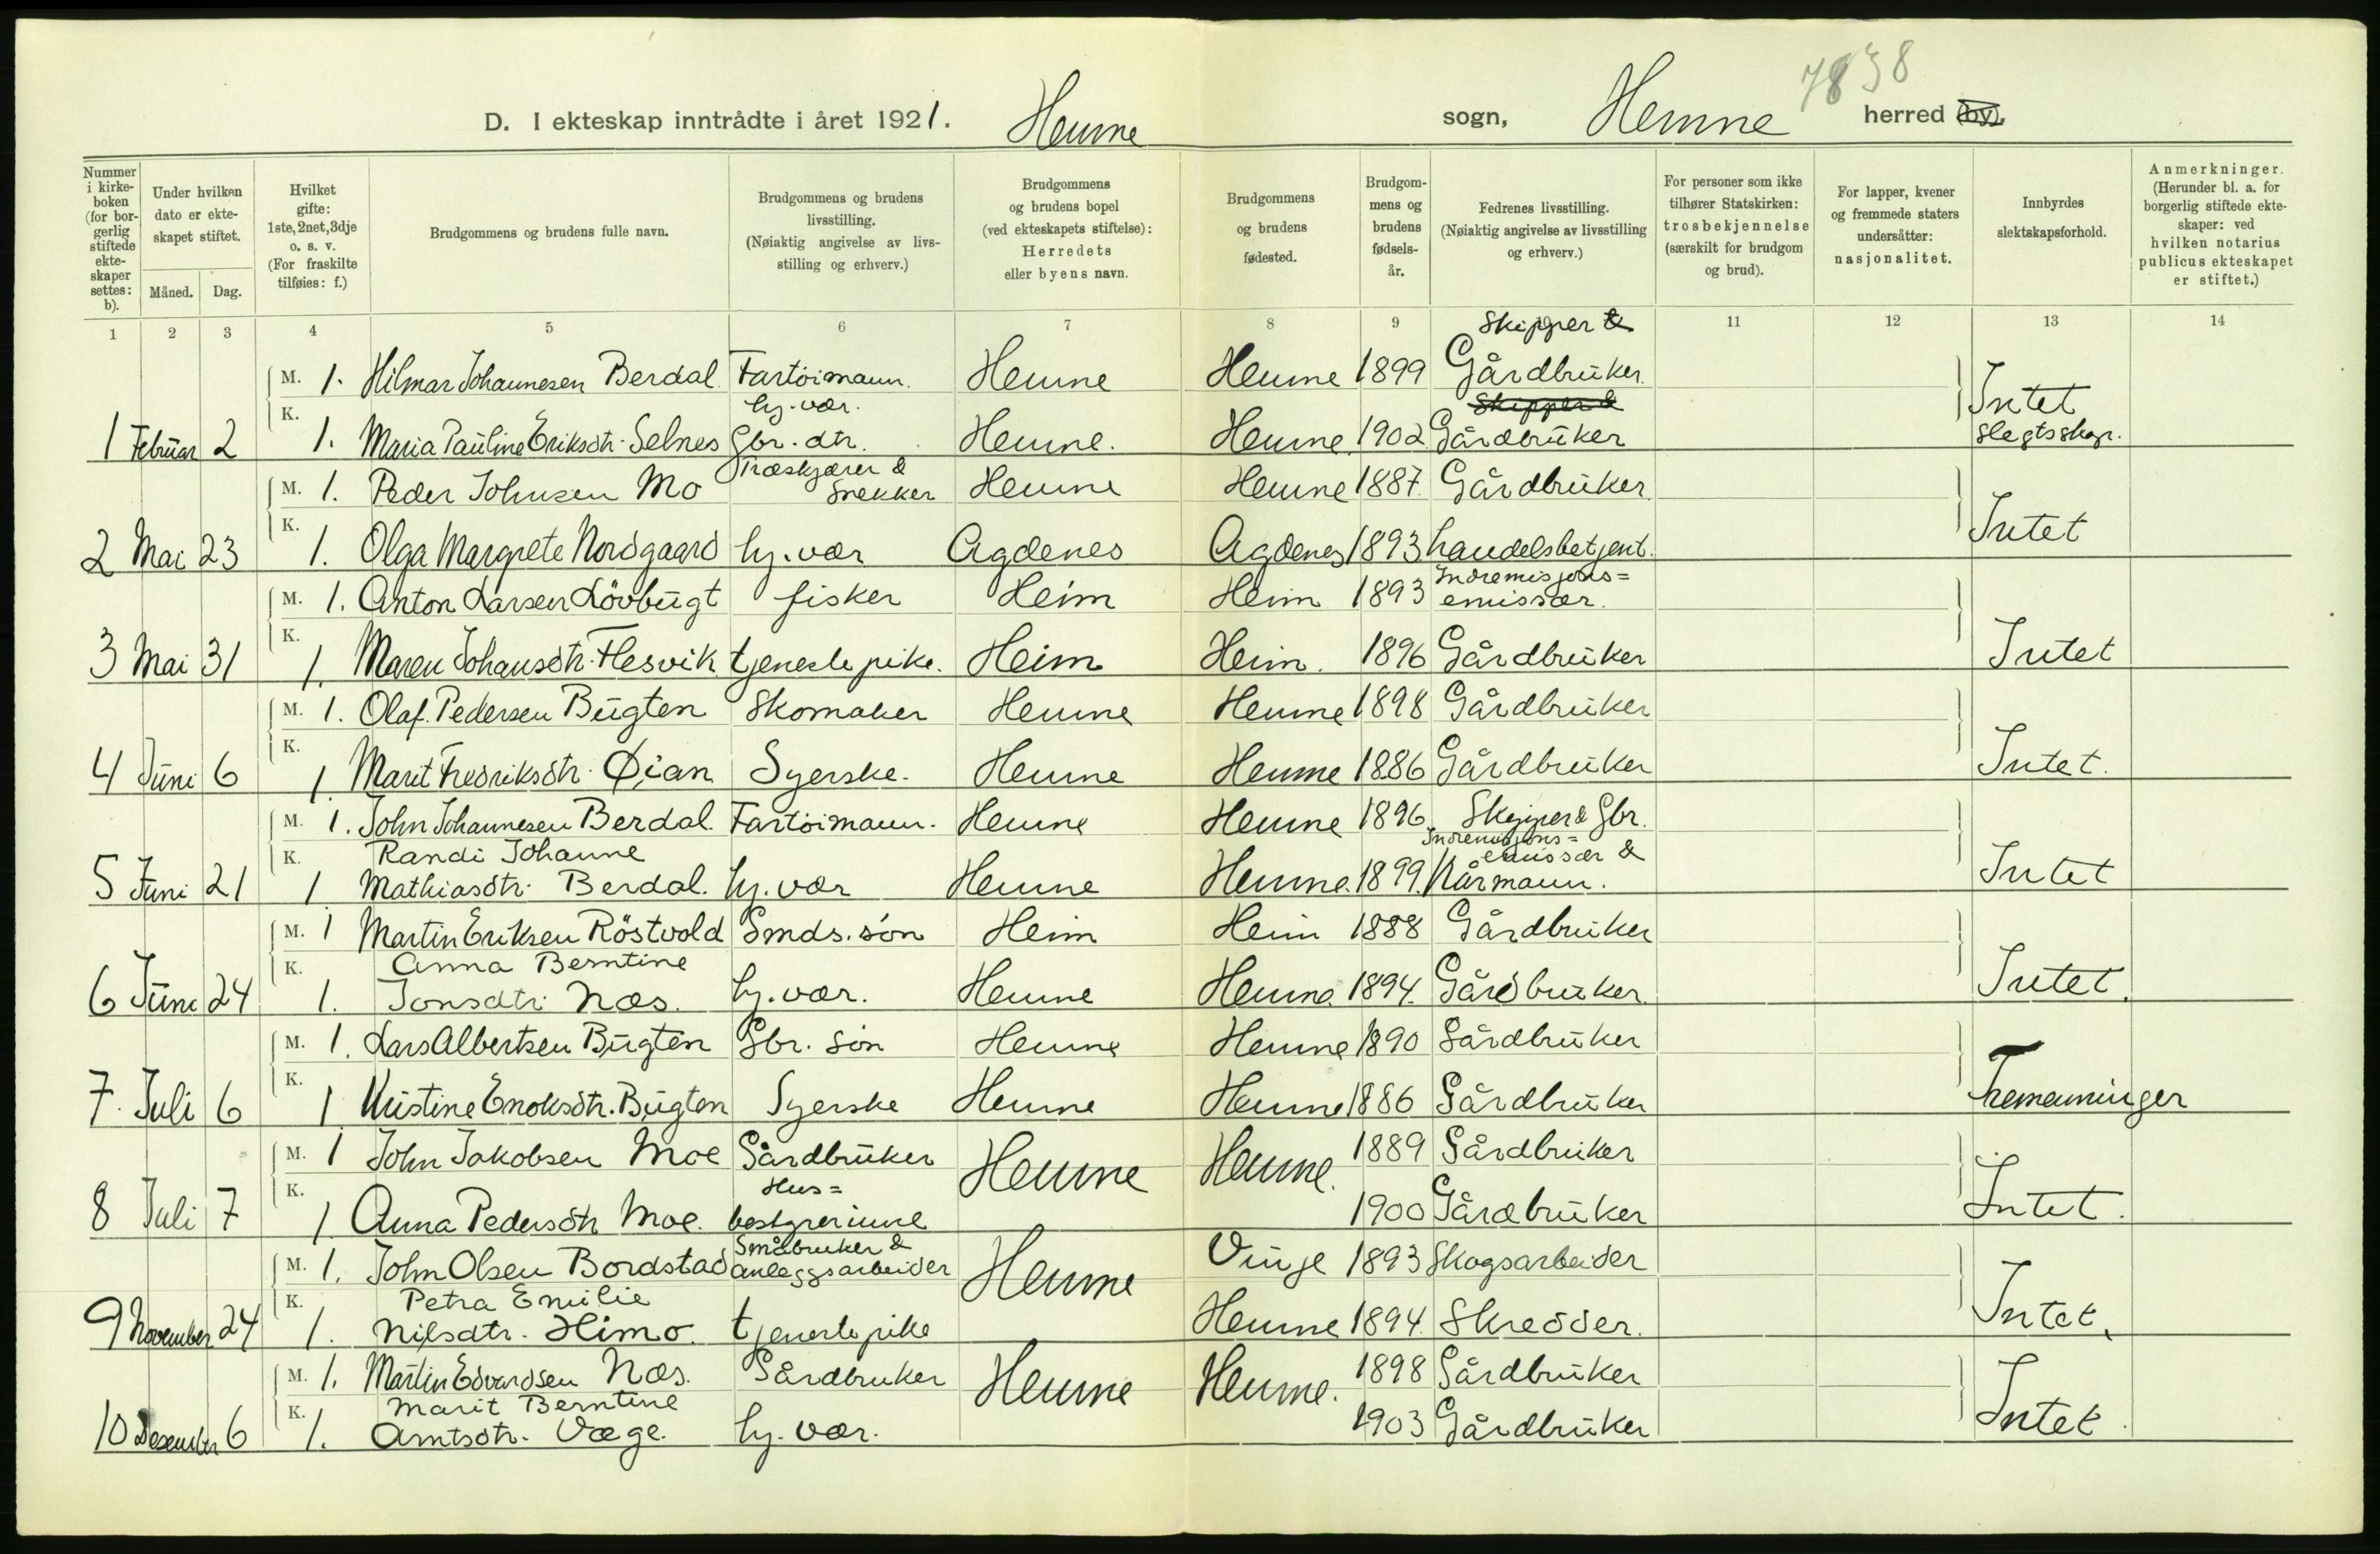 7838
D. I ekteskap inntrådte i året 1921. Hemne sogn, Hemne herred (by).
Nummer i kirkeboken (for borgerlig stiftede ekteskaper settes: b).
Under hvilken dato er ekteskapet stiftet.
Måned. Dag.
Hvilket gifte: 1ste, 2net, 3dje o. s. v. (For fraskilte tilføies: f.)
Brudgommens og brudens fulle navn.
Brudgommens og brudens livsstilling. (Nøiaktig angivelse av livsstilling og erhverv.)
Brudgommens og brudens bopel (ved ekteskapets stiftelse): Herredets eller byens navn.
Brudgommens og brudens fødested.
Brudgommens og brudens fødselsår.
Fedrenes livsstilling. (Nøiaktig angivelse av livsstilling og erhverv.)
For personer som ikke tilhører Statskirken: trosbekjennelse (særskilt for brudgom og brud).
For lapper, kvener og fremmede staters undersåtter: nasjonalitet.
Innbyrdes slektskapsforhold.
Anmerkninger. (Herunder bl. a. for borgerlig stiftede ekteskaper: ved hvilken notarius publicus ekteskapet er stiftet.)
1 2 3 4 5 6 7 8 9 11 12 13 14
M. 1. Hilmar Johannesen Berdal. Fartöimann. Hemne Hemne 1899 Skipper & Gårdbruker.
1 Februar 2 K. 1. Maria Pauline Eriksdtr. Selnes hj. vær. Gbr. dtr. Hemne. Hemne. 1902 Skipper & Gårdbruker Intet Slegtsskap.
M. 1. Peder Johnsen Mo Træskjærer & Snekker Hemne Hemne 1887. Gårdbruker
2 Mai 23 K. 1. Olga Margrete Nordgaard hj. vær Agdenes Agdenes 1893 handelsbetjent. Intet
M. 1. Anton Larsen Lövbugt fisker Heim Heim 1893 Indremisjons= emissær.
3 Mai 31 K. 1. Maren Johansdtr. Flesvik tjenestepike. Heim Heim. 1896 Gårdbruker Intet
M. 1. Olaf Pedersen Bugten Skomaker Hemne Hemne 1898 Gårdbruker
4 Juni 6 K. 1 Marit Fredriksdtr. Øian Syerske. Hemne Hemne 1886 Gårdbruker Intet.
M. 1. John Johannesen Berdal. Fartöimann. Hemne Hemne 1896 Skipper & Gbr.
5 Juni 21 K. 1 Randi Johanne Mathiasdtr. Berdal. hj. vær Hemne Hemne. 1899. Indremisjons= emissær & Kårmann. Intet
M. 1 Martin Eriksen Röstvold Smds. sön Heim Heim 1888 Gårdbruker
6 Juni 24 K. 1. Anna Berntine Jonsdtr. Næs. hj. vær. Hemne Hemne 1894. Gårdbruker. Intet.
M. 1. Lars Albertsen Bugten Gbr. sön Hemne Hemne 1890 Gårdbruker
7. Juli 6 K. 1 Kristine Enoksdtr. Bugten Syerske Hemne Hemne 1886 Gårdbruker Tremenninger
M. 1 John Jakobsen Moe Gårdbruker Hemne Hemne. 1889 Gårdbruker
8 Juli 7 K. 1. Anna Pedersdtr Moe. Hus= bestyrerinne 1900 Gårdbruker Intet.
M. 1. John Olsen Bordstad Småbruker & anleggsarbeider Hemne Vinje 1893 Skogsarbeider
9 November 24 K. 1. Petra Emilie Nilsdtr. Himo. tjenestepike Hemne 1894. Skredder. Intet.
M. 1. Martin Edvardsen Næs. Gårdbruker Hemne Hemne. 1898 Gårdbruker
10 Desember 6 K. 1. Marit Berntine Arntsdtr. Væge. hj. vær. 1903 Gårdbruker Intet.